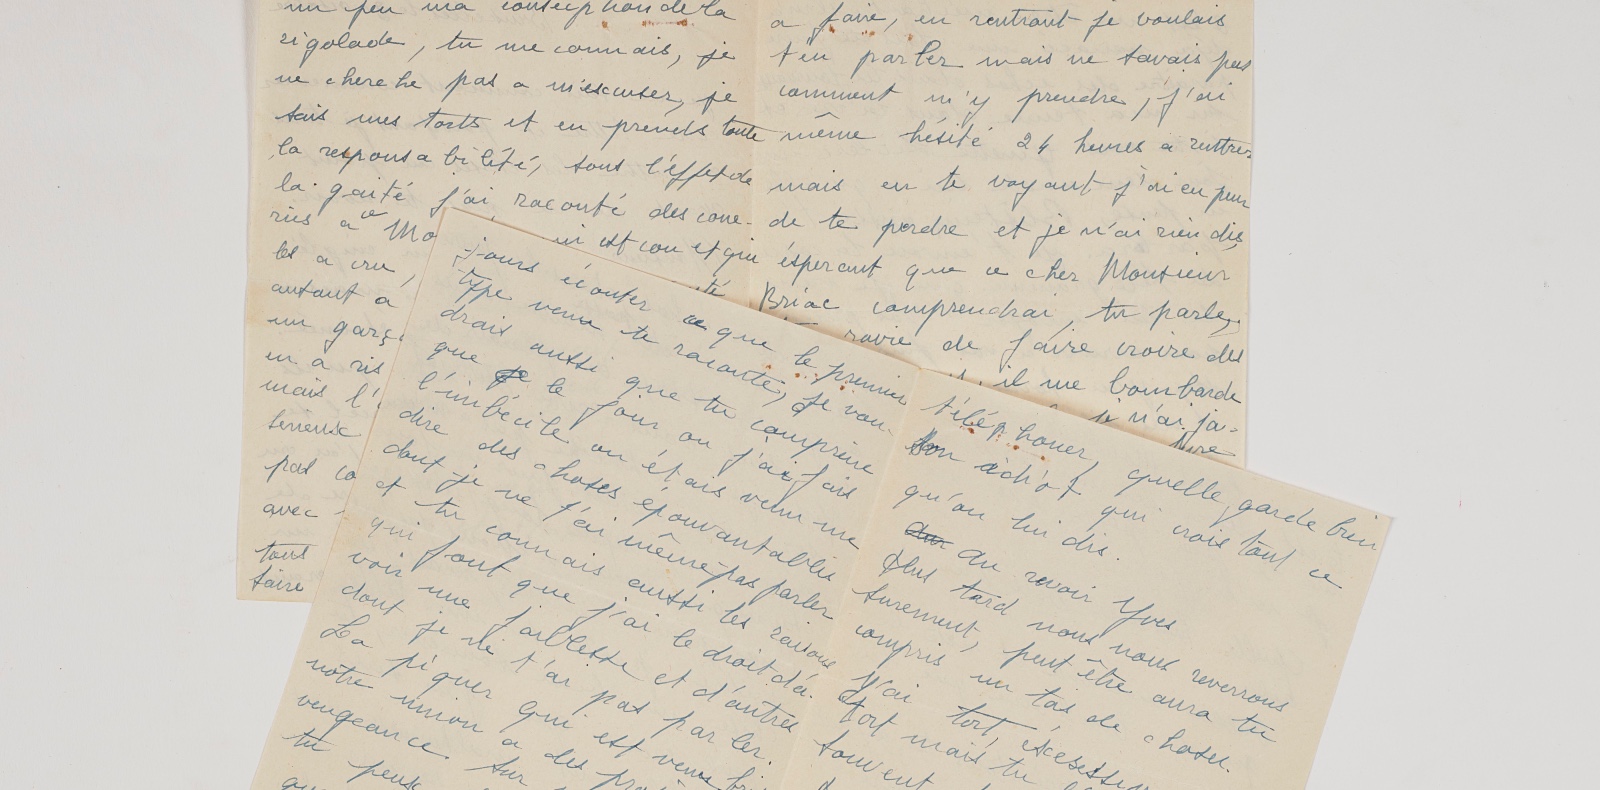 un peu ma conseption de la
rigolade, tu me connais, je
ne cherche pas a m'éscuser, je
sais mes torts et en prends toute
la responsabilité, sous l'éffet de
la gaité j'ai raconté des cone-
ries a ce Mo
ui est con et qui
les a cru,
té
autant a
un garç
en a ris
mais l'
serieuse
pas co
avec
tout
faire
a faire, en rentrant je voulais
t'en parler mais ne savais pas
comment m'y prendre, j'ai
même hésité 24 heures a renttrer
mais en te voyant j'ai eu peur
de te perdre et je n'ai rien dis,
ésperant que ce cher Monsieur
Briac comprendrai, tu parle,
ravie de faire croire des
il me bombarde
je n'ai ja-
jours écouter ce que le premier
type venu te raconté, je vou-
drais aussi que tu comprène
que je le jour ou j'ai fais
l'imbécile on étais venu me
dire des choses épouvantables
dont je ne t'ai même pas parler
et tu connais aussi les raisons
qui font que j'ai le droit d'a-
voir une faiblesse et d'autres
dont je ne t'ai pas parler.
La piquer qui est venu
notre union a des
vengeance. Sur
tu peux
téléphoner, quelle garde bien
son idiot qui crois tout ce
qu'on lui dis.
au revoir Yves
Plus tard nous nous reverrons
surement, peut être aura tu
compris un tas de choses.
J'ai tort,
tort mais tu
souvent